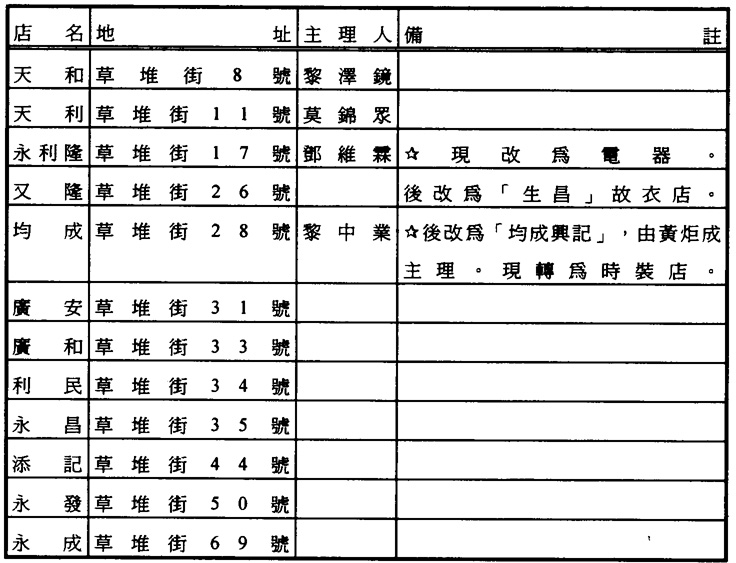 店名 地址 主理人 備註
天和 草堆街8號 黎澤鏡
天利 草堆街11號 莫錦眾
永利隆 草堆街17號 鄧維霖 ☆現改爲電器。
又隆 草堆街26號 後改爲「生昌」故衣店。
均成 草堆街28號 黎中業 ☆後改爲「均成興記」，由黃炬成
主理。現轉爲時裝店。
廣安 草堆街31號
廣和 草堆街33號
利民 草堆街34號
永昌 草堆街35號
添記 草堆街44號
永發 草堆街50號
永成 草堆街69號